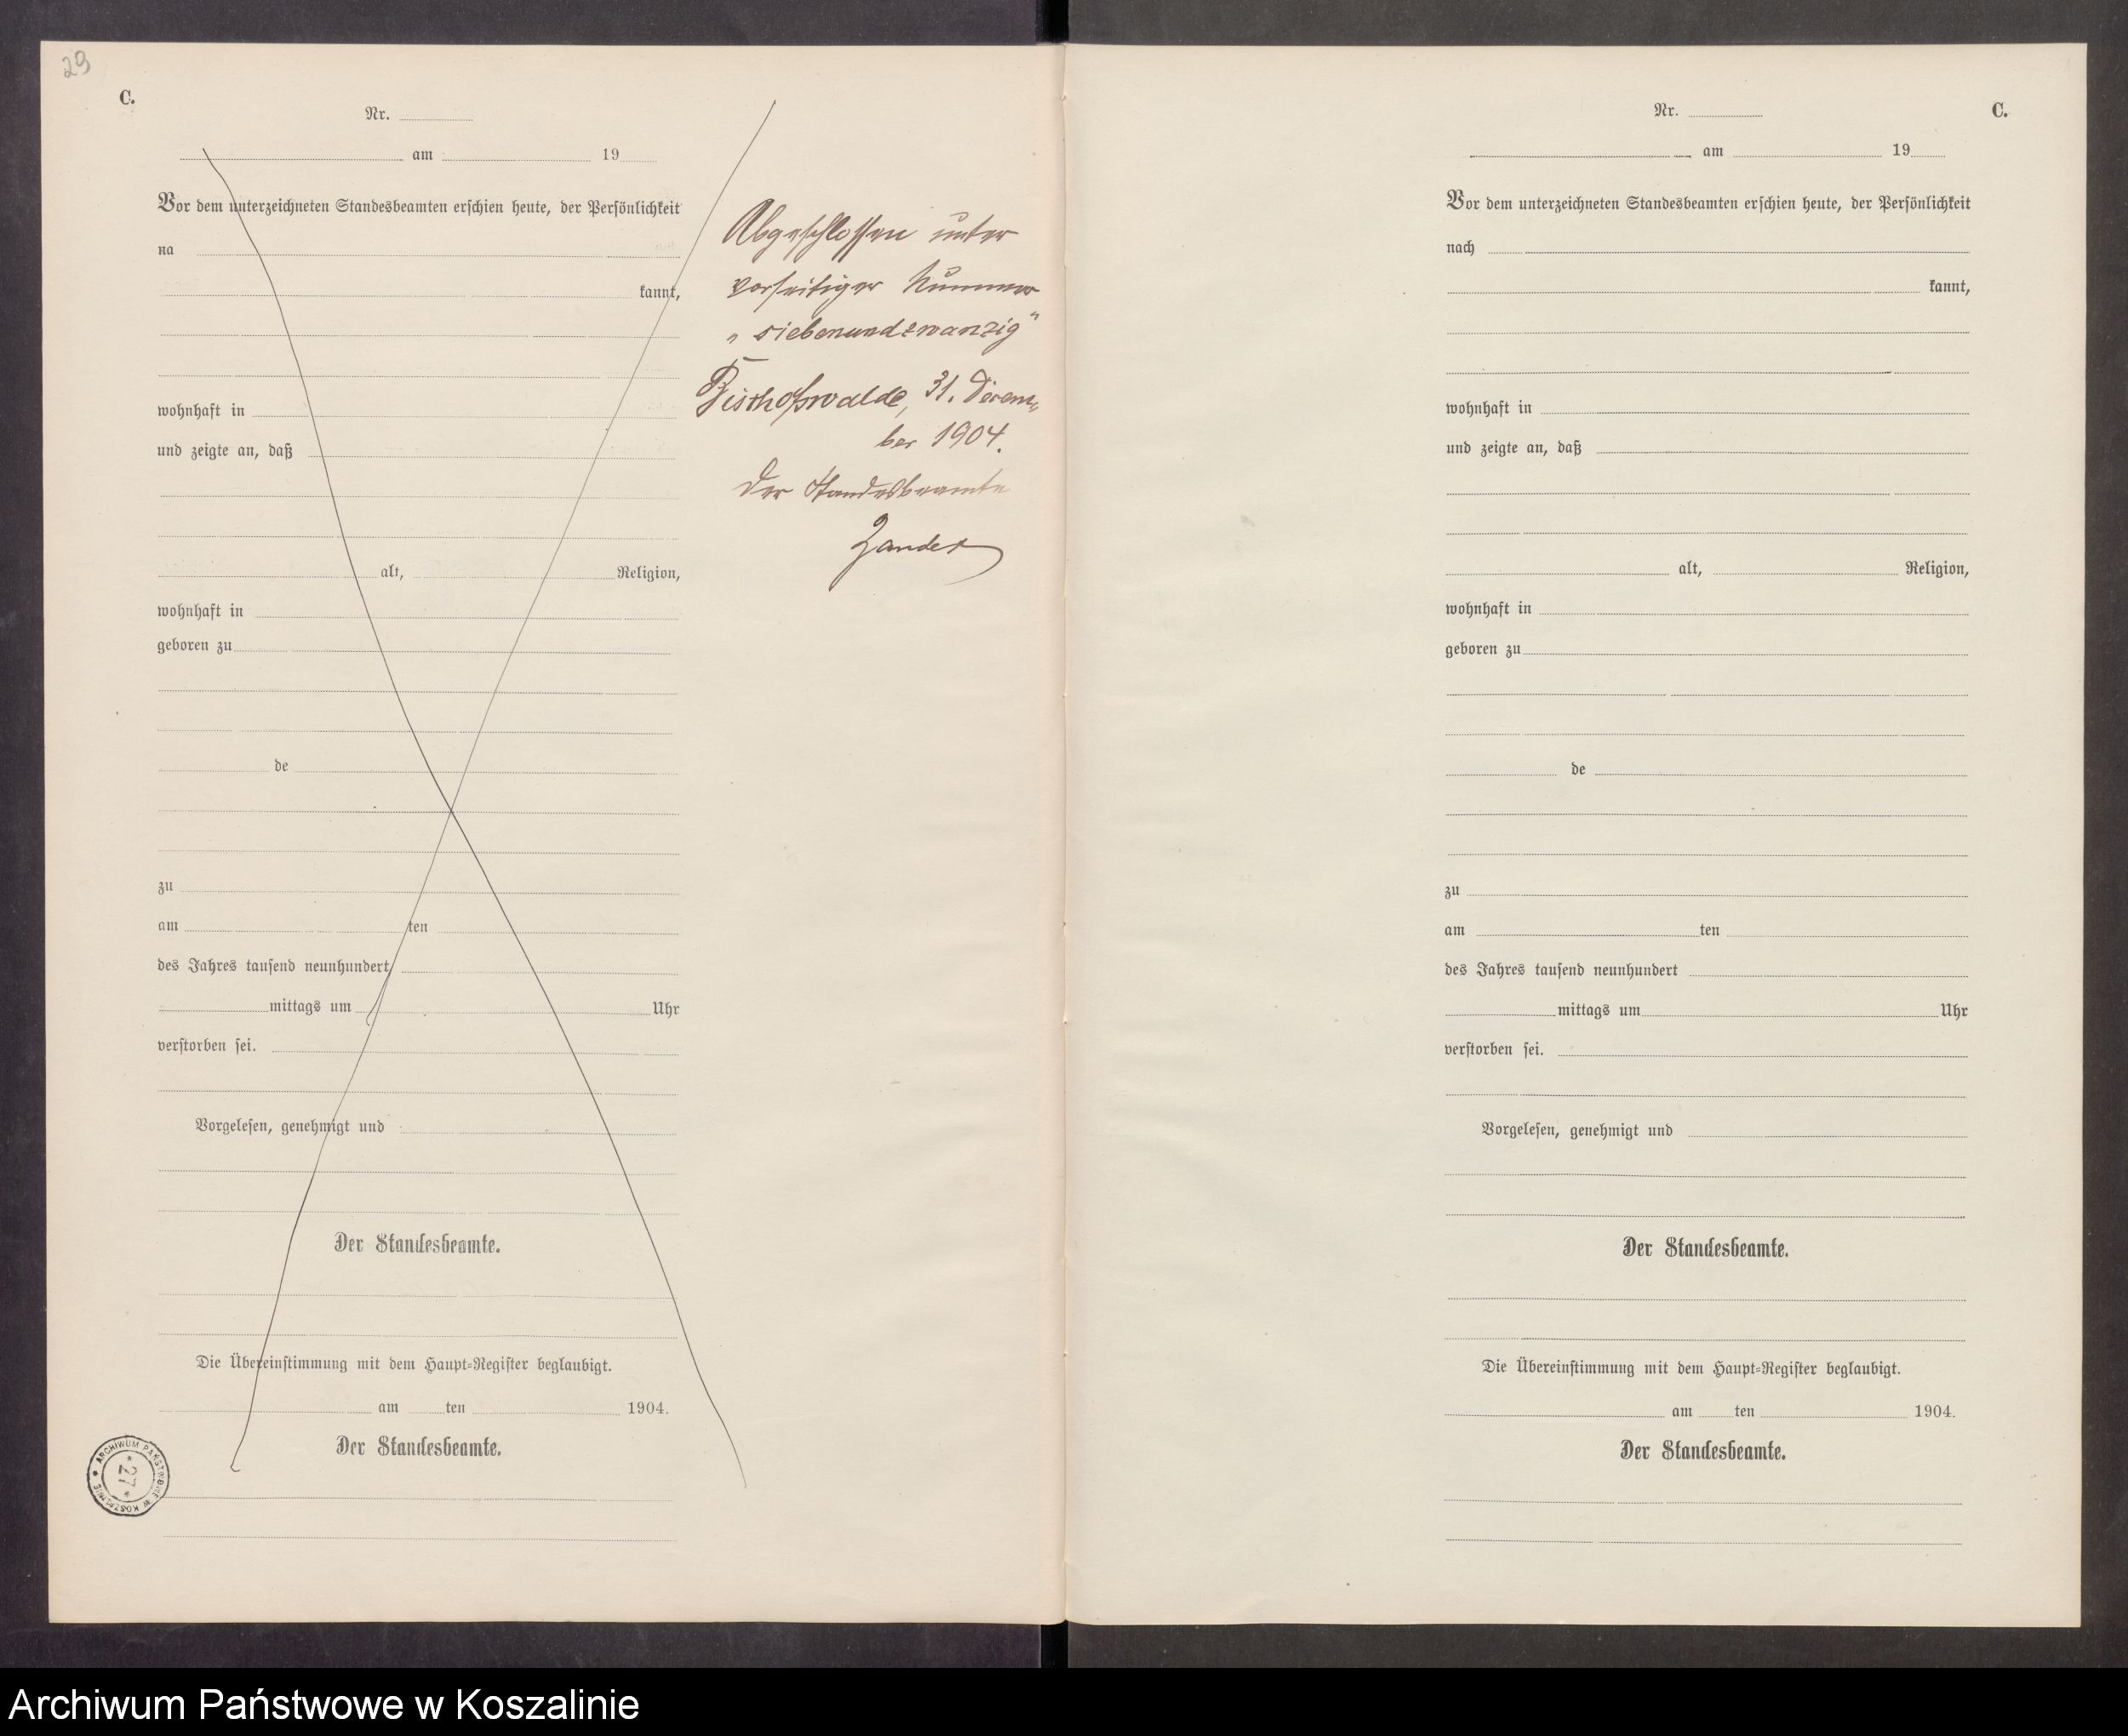 29
C.
Nr.
am 19
Vor dem unterzeichneten Standesbeamten erschien heute, der Persönlichkeit
na
kannt,
wohnhaft in
und zeigte an, daß
alt, Religion,
wohnhaft in
geboren zu
de
zu
am ten
des Jahres tausend neunhundert
mittags um Uhr
verstorben sei.
Vorgelesen, genehmigt und
Der Standesbeamte.
Die Übereinstimmung mit dem Haupt-Register beglaubigt.
am ten 1904.
Der Standesbeamte.
ARCHIWUM PAŃSTWOWE W KOSZALINIE
* 27 *
Abgeschlossen unter
vorseitiger Nummer
„siebenundzwanzig"
Bischofswalde, 31. Dezem-
ber 1904.
Der Standesbeamte
Zander
Nr.
C.
am 19
Vor dem unterzeichneten Standesbeamten erschien heute, der Persönlichkeit
nach
kannt,
wohnhaft in
und zeigte an, daß
alt, Religion,
wohnhaft in
geboren zu
de
zu
am ten
des Jahres tausend neunhundert
mittags um Uhr
verstorben sei.
Vorgelesen, genehmigt und
Der Standesbeamte.
Die Übereinstimmung mit dem Haupt-Register beglaubigt.
am ten 1904.
Der Standesbeamte.
Archiwum Państwowe w Koszalinie